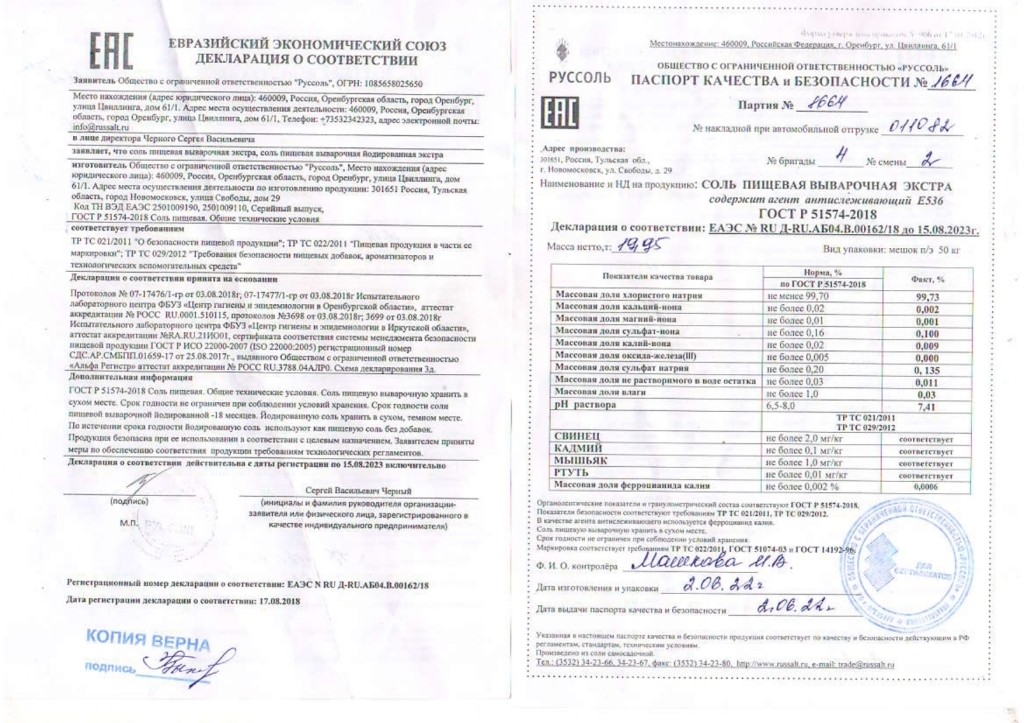 ЕАС
ЕВРАЗИЙСКИЙ ЭКОНОМИЧЕСКИЙ СОЮЗ
ДЕКЛАРАЦИЯ О СООТВЕТСТВИИ
Заявитель Общество с ограниченной ответственностью "Руссоль", ОГРН: 1085658025650
Место нахождения (адрес юридического лица): 460009, Россия, Оренбургская область, город Оренбург,
улица Цвиллинга, дом 61/1. Адрес места осуществления деятельности: 460009, Россия, Оренбургская
область, город Оренбург, улица Цвиллинга, дом 61/1, Телефон: +73532342323, адрес электронной почты:
info@russalt.ru
в лице директора Черного Сергея Васильевича
заявляет, что соль пищевая выварочная экстра, соль пищевая выварочная йодированная экстра
изготовитель Общество с ограниченной ответственностью "Руссоль", Место нахождения (адрес
юридического лица): 460009, Россия, Оренбургская область, город Оренбург, улица Цвиллинга, дом
61/1. Адрес места осуществления деятельности по изготовлению продукции: 301651 Россия, Тульская
область, город Новомосковск, улица Свободы, дом 29
Код ТН ВЭД ЕАЭС 2501009190, 2501009110, Серийный выпуск,
ГОСТ Р 51574-2018 Соль пищевая. Общие технические условия
соответствует требованиям
ТР ТС 021/2011 "О безопасности пищевой продукции"; ТР ТС 022/2011 "Пищевая продукция в части ее
маркировки"; ТР ТС 029/2012 "Требования безопасности пищевых добавок, ароматизаторов и
технологических вспомогательных средств"
Декларация о соответствии принята на основании
Протоколов № 07-17476/1-гр от 03.08.2018г, 07-17477/1-гр от 03.08.2018г Испытательного
лабораторного центра ФБУЗ «Центр гигиены и эпидемиологии в Оренбургской области», аттестат
аккредитации № РОСС RU.0001.510115, протоколов №3698 от 03.08.2018г; 3699 от 03.08.2018г
Испытательного лабораторного центра ФБУЗ «Центр гигиены и эпидемиологии в Иркутской области»,
аттестат аккредитации №RA.RU.21ИО01, сертификата соответствия системы менеджмента безопасности
пищевой продукции ГОСТ Р ИСО 22000-2007 (ISO 22000:2005) регистрационный номер
СДС.АР.СМБПП.01659-17 от 25.08.2017г., выданного Обществом с ограниченной ответственностью
«Альфа Регистр» аттестат аккредитации № РОСС RU.3788.04АЛР0. Схема декларирования 3д.
Дополнительная информация
ГОСТ Р 51574-2018 Соль пищевая. Общие технические условия. Соль пищевую выварочную хранить в
сухом месте. Срок годности не ограничен при соблюдении условий хранения. Срок годности соли
пищевой выварочной йодированной -18 месяцев. Йодированную соль хранить в сухом, темном месте.
По истечении срока годности йодированную соль используют как пищевую соль без добавок.
Продукция безопасна при ее использовании в соответствии с целевым назначением. Заявителем приняты
меры по обеспечению соответствия продукции требованиям технологических регламентов.
Декларация о соответствии действительна с даты регистрации по 15.08.2023 включительно
(подпись)
М.П.
Сергей Васильевич Черный
(инициалы и фамилия руководителя организации-
заявителя или физического лица, зарегистрированного в
качестве индивидуального предпринимателя)
Регистрационный номер декларации о соответствии: ЕАЭС N RU Д-RU.АБ04.В.00162/18
Дата регистрации декларации о соответствии: 17.08.2018
КОПИЯ ВЕРНА
подпись
Местонахождение: 460009, Российская Федерация, г. Оренбург, ул. Цвиллинга, 61/1
РУССОЛЬ
ОБЩЕСТВО С ОГРАНИЧЕННОЙ ОТВЕТСТВЕННОСТЬЮ «РУССОЛЬ»
ПАСПОРТ КАЧЕСТВА и БЕЗОПАСНОСТИ № 1664
Партия № 1664
ЕАС
№ накладной при автомобильной отгрузке 011082
Адрес производства:
301651, Россия, Тульская обл.,
г. Новомосковск, ул. Свободы, д. 29
№ бригады 4 № смены 2
Наименование и НД на продукцию: СОЛЬ ПИЩЕВАЯ ВЫВАРОЧНАЯ ЭКСТРА
содержит агент антислеживающий Е536
ГОСТ Р 51574-2018
Декларация о соответствии: ЕАЭС № RU Д-RU.АБ04.В.00162/18 до 15.08.2023г.
Масса нетто,т: 19,95 Вид упаковки: мешок п/э 50 кг
Показатели качества товара Норма, % по ГОСТ Р 51574-2018 Факт, %
Массовая доля хлористого натрия не менее 99,70 99,73
Массовая доля кальций-иона не более 0,02 0,002
Массовая доля магний-иона не более 0,01 0,001
Массовая доля сульфат-иона не более 0,16 0,100
Массовая доля калий-иона не более 0,02 0,009
Массовая доля оксида-железа(III) не более 0,005 0,000
Массовая доля сульфат натрия не более 0,20 0, 135
Массовая доля не растворимого в воде остатка не более 0,03 0,011
Массовая доля влаги не более 1,0 0,03
pH раствора 6,5-8,0 7,41
ТР ТС 021/2011
ТР ТС 029/2012
СВИНЕЦ не более 2,0 мг/кг соответствует
КАДМИЙ не более 0,1 мг/кг соответствует
МЫШЬЯК не более 1,0 мг/кг соответствует
РТУТЬ не более 0,01 мг/кг соответствует
Массовая доля ферроцианида калия не более 0,002 % 0,0006
Органолептические показатели и гранулометрический состав соответствуют ГОСТ Р 51574-2018.
Показатели безопасности соответствуют требованиям ТР ТС 021/2011, ТР ТС 029/2012.
В качестве агента антислеживающего используется ферроцианид калия.
Соль пищевую выварочную хранить в сухом месте.
Срок годности не ограничен при соблюдении условий хранения.
Маркировка соответствует требованиям ТР ТС 022/2011, ГОСТ 51074-03 и ГОСТ 14192-96.
Ф. И. О. контролёра Машкова И.В.
Дата изготовления и упаковки 2.06.22г
Дата выдачи паспорта качества и безопасности 2.06.22г.
ДЛЯ
СЕРТИФИКАТОВ
Указанная в настоящем паспорте качества и безопасности продукция соответствует по качеству и безопасности действующим в РФ
регламентам, стандартам, техническим условиям.
Произведено из соли самосадочной.
Тел.: (3532) 34-23-66, 34-23-67, факс: (3532) 34-23-80, http://www.russalt.ru, e-mail: trade@russalt.ru